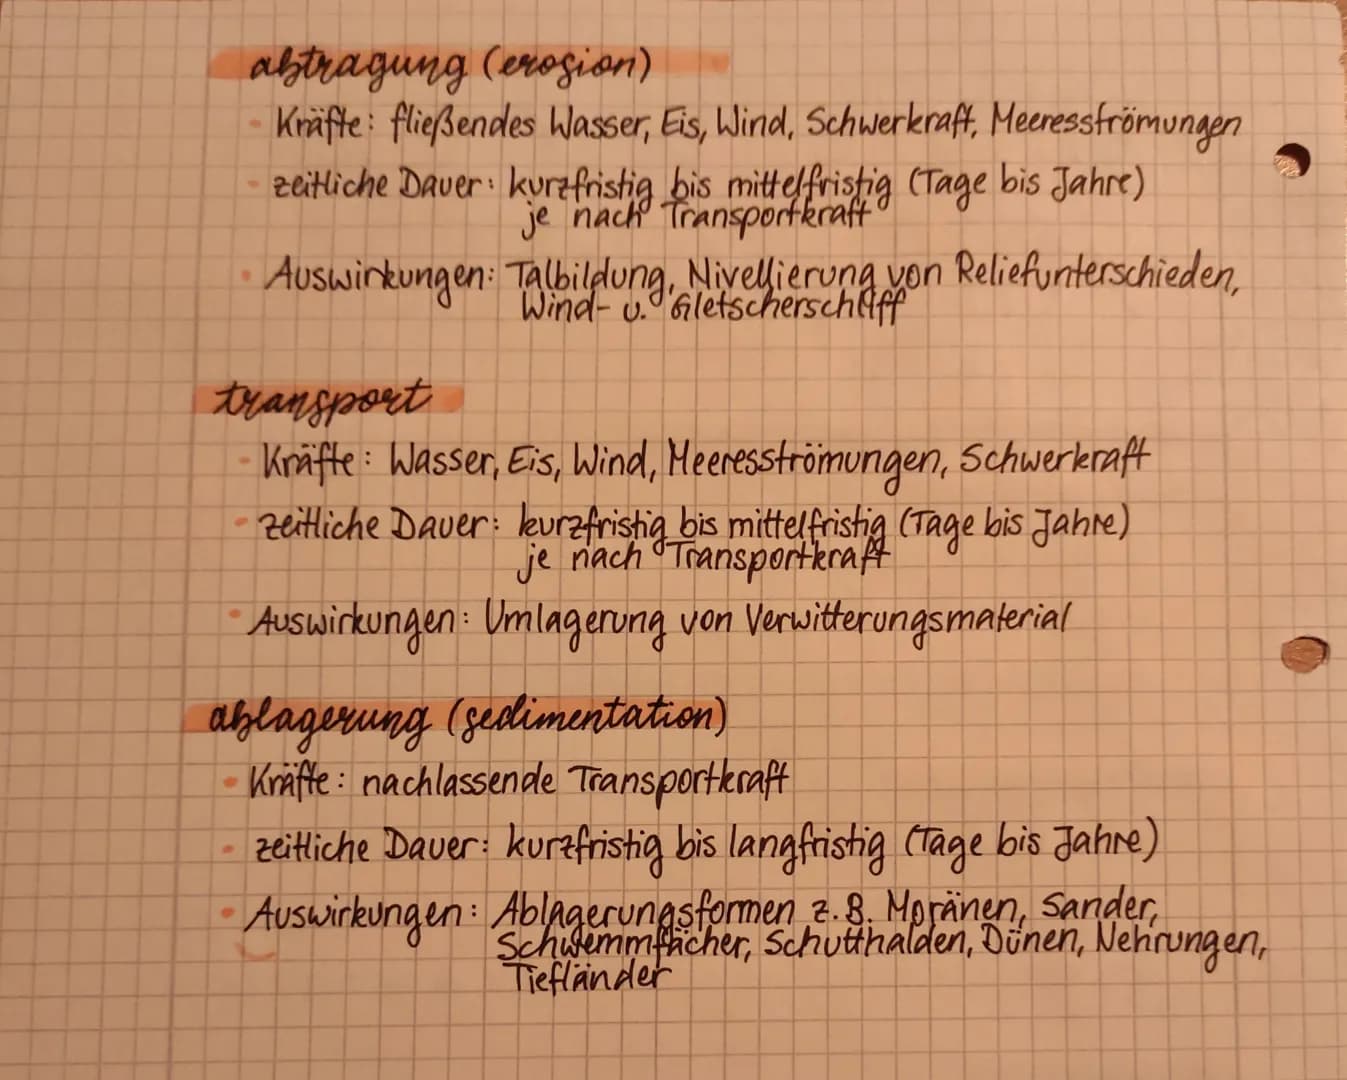 abtragung (erosion)
Kräfte: fließendes Wasser, Eis, Wind, Schwerkraft, Meeresströmungen
zeitliche Dauer: kurzfristig bis mittelfristig (Tage bis Jahre)
je nach Transportkraft
Auswirkungen: Talbildung, Nivellierung von Reliefunterschieden,
Wind- u. Gletscherschliff
transport
Kräfte: Wasser, Eis, Wind, Meeresströmungen, Schwerkraft
zeitliche Dauer: kurzfristig bis mittelfristig (Tage bis Jahre)
je nach Transportkraft
Auswirkungen: Umlagerung von Verwitterungsmaterial
ablagerung (sedimentation)
Kräfte: nachlassende Transportkraft
zeitliche Dauer: kurzfristig bis langfristig (Tage bis Jahre)
Auswirkungen: Ablagerungsformen z.B. Moränen, Sander,
Schwemmfächer, Schutthalden, Dünen, Nehrungen,
Tiefländer